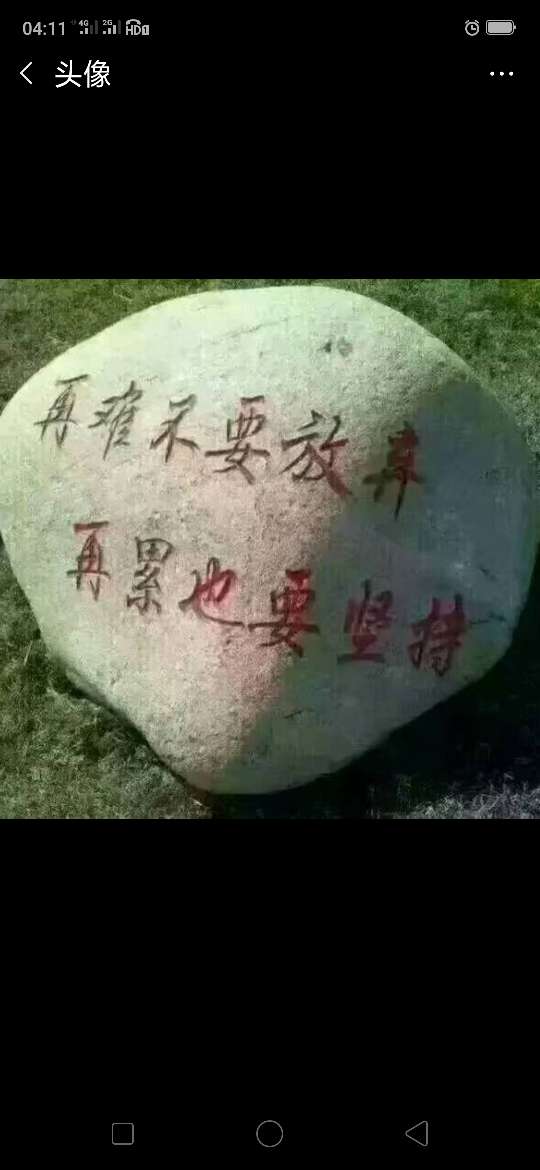 04:11 4G 2G HD
头像
再难不要放弃
再累也要坚持